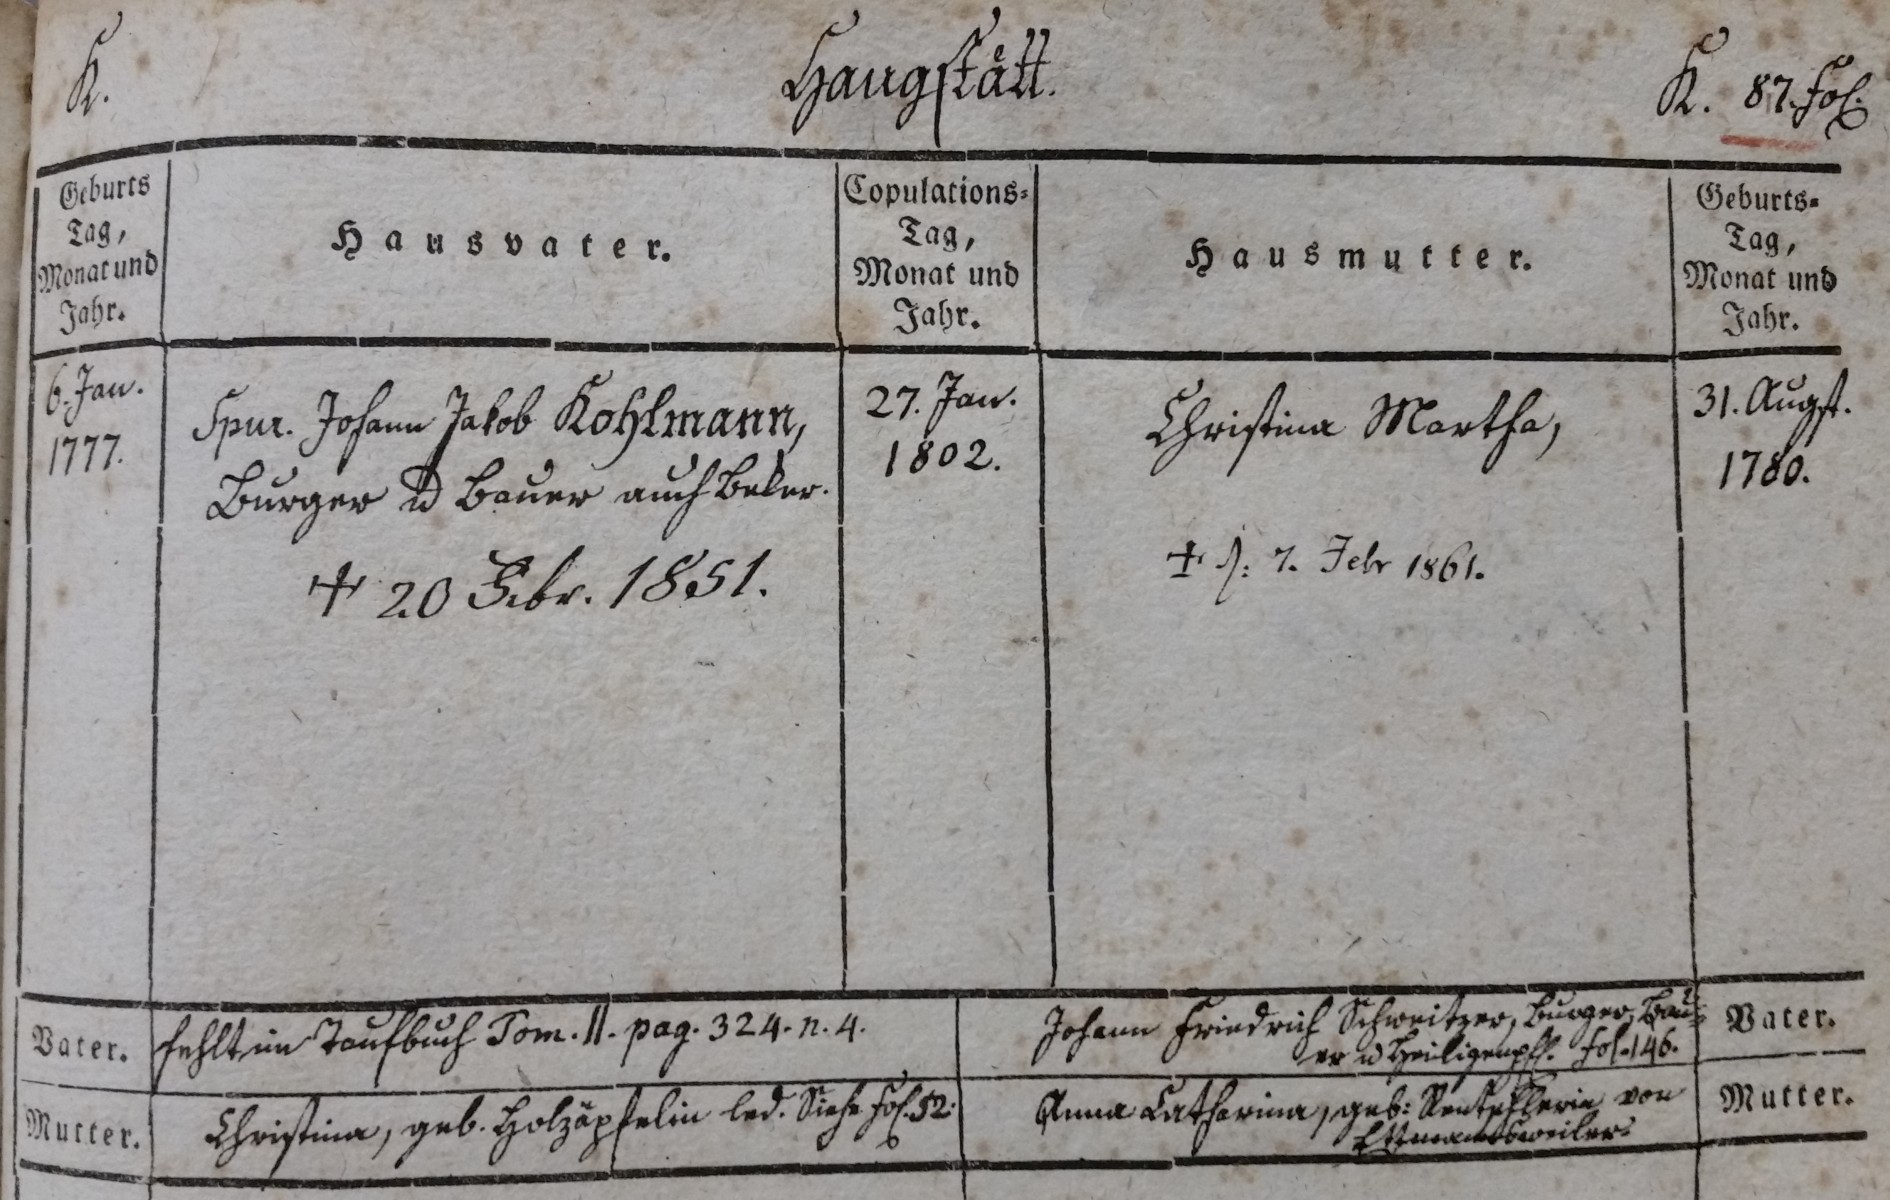 K.
Haugstätt.
K. 87. Fol.
Geburts
Tag,
Monat und
Jahr.
Hausvater.
Copulations-
Tag,
Monat und
Jahr.
Hausmutter.
Geburts-
Tag,
Monat und
Jahr.
6. Jan.
1777.
Spur. Johann Jakob Kohlmann,
Burger u Bauer auch Beker.
† 20 Febr. 1851.
27. Jan.
1802.
Christina Martha,
† d. 7. Febr 1861.
31. Augst.
1780.
Vater.
fehlt im Taufbuch Tom. II. pag. 324. n. 4.
Johann Friedrich Schweitzer, Burger, Bau-
er u Heiligenpfl. Fol. 146.
Vater.
Mutter.
Christina, geb. Holzäpfelin led. Siehe Fol. 52.
Anna Catharina, geb: Rentschlerin von
Ettmannsweiler.
Mutter.